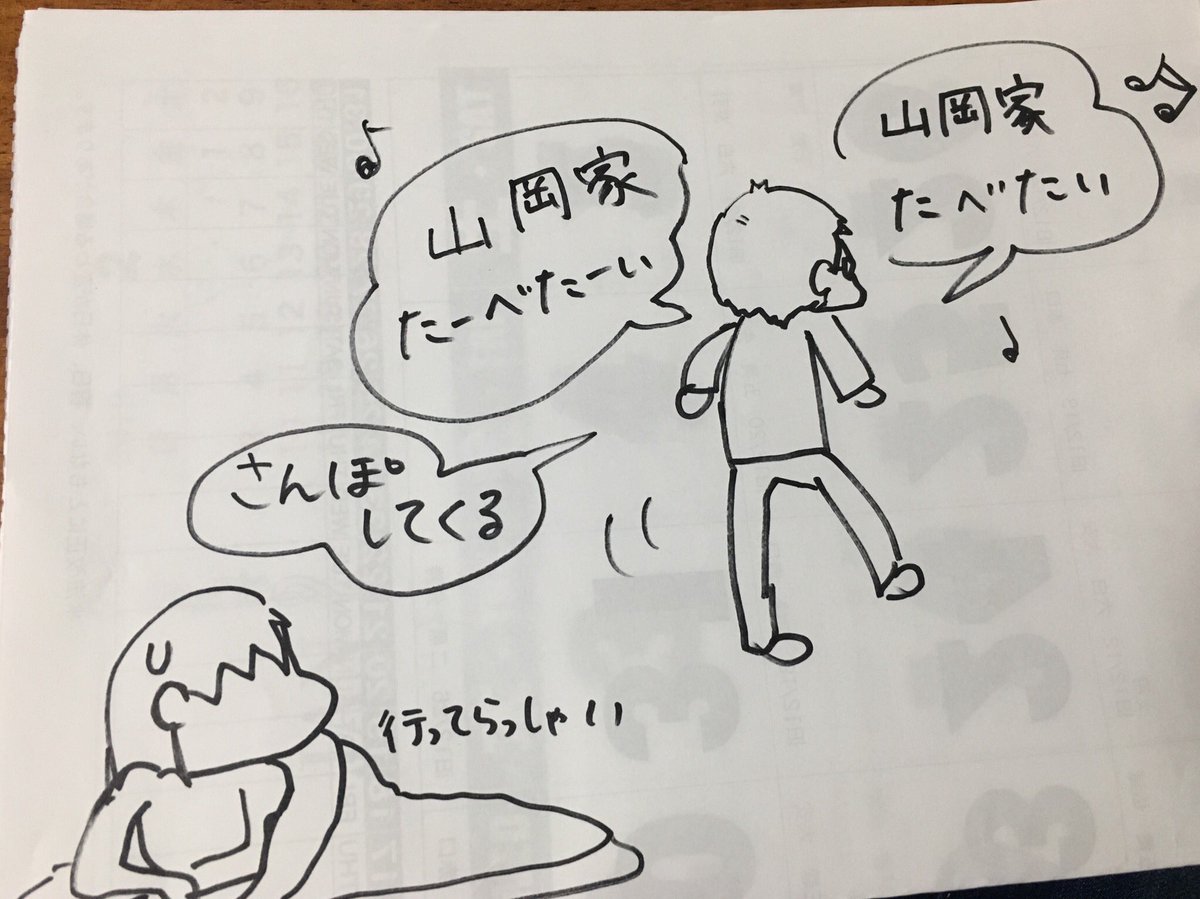 山岡家
たべたい
山岡家
たーべたーい
さんぽ
してくる
行ってらっしゃい